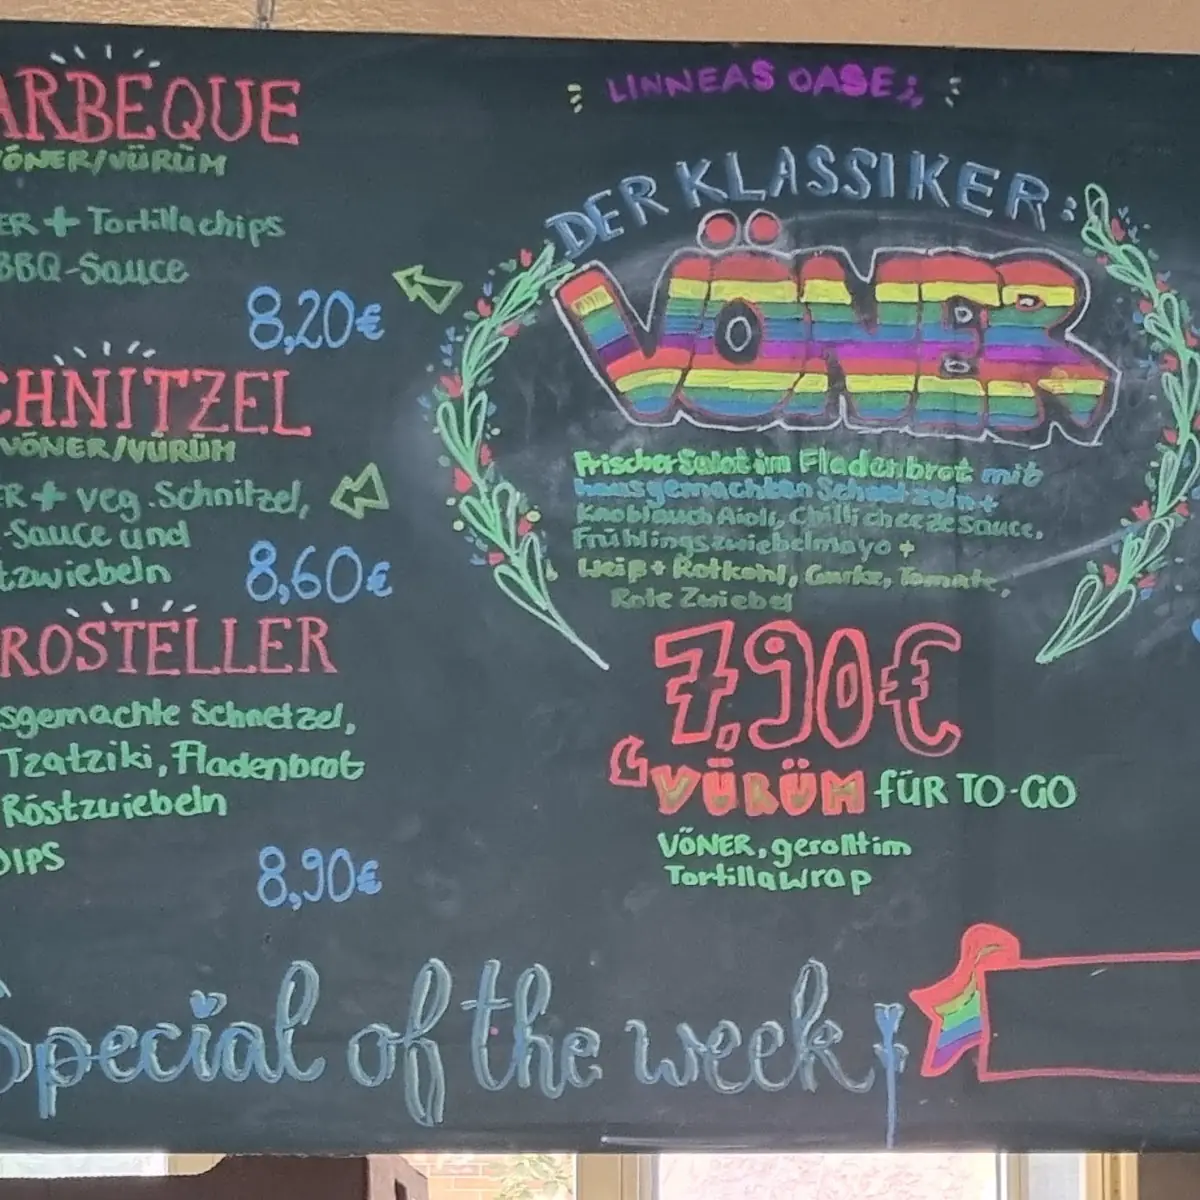 ARBEQUE
ÖNER/VÜRÜM
ER + Tortillachips
BBQ-Sauce
8,20€
CHNITZEL
VÖNER/VÜRÜM
ER + veg. Schnitzel,
-Sauce und
tzwiebeln
8,60€
ROSTELLER
sgemachte Schnetzel,
Tzatziki, Fladenbrot
Röstzwiebeln
DIPS
8,90€
LINNEAS OASE
DER KLASSIKER:
VÖNER
Frischer Salat im Fladenbrot mit
hausgemachten Schnetzeln +
Knoblauch Aioli, Chilli cheeze sauce,
Frühlingszwiebelmayo +
Weiß + Rotkohl, Gurke, Tomate,
Rote Zwiebel
7,90€
VÜRÜM FÜR TO-GO
VÖNER, gerollt im
Tortillawrap
Special of the week